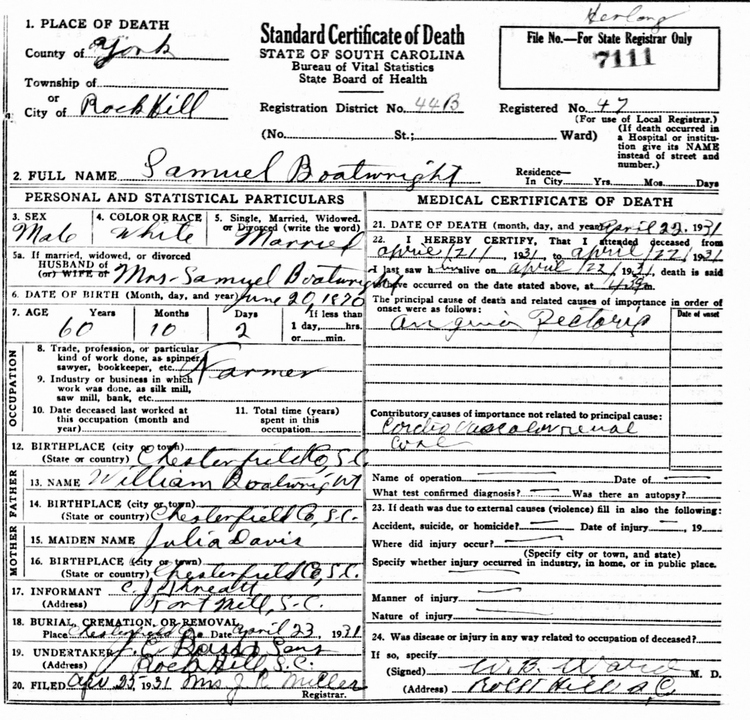 Herlong
1. PLACE OF DEATH
County of York
Township of
or
City of Rock Hill
Standard Certificate of Death
STATE OF SOUTH CAROLINA
Bureau of Vital Statistics
State Board of Health
File No.—For State Registrar Only
7111
Registration District No. 44B
Registered No. 47
(For use of Local Registrar.)
(No. St.; Ward)
(If death occurred in a Hospital or institution give its NAME instead of street and number.)
2. FULL NAME Samuel Boatwright
Residence—
In City Yrs. Mos. Days
PERSONAL AND STATISTICAL PARTICULARS
3. SEX
Male
4. COLOR OR RACE
White
5. Single, Married, Widowed, or Divorced (write the word)
Married
5a. If married, widowed or divorced
HUSBAND of
(or) WIFE of Mrs. Samuel Boatwright
6. DATE OF BIRTH (Month, day, and year) June 20, 1870
7. AGE Years Months Days If less than
60 10 2 1 day, hrs.
or min.
OCCUPATION
8. Trade, profession, or particular
kind of work done, as spinner,
sawyer, bookkeeper, etc. Farmer
9. Industry or business in which
work was done, as silk mill,
saw mill, bank, etc.
10. Date deceased last worked at
this occupation (month and
year)
11. Total time (years)
spent in this
occupation
12. BIRTHPLACE (city or town)
(State or country) Chesterfield Co, S.C.
FATHER
13. NAME William Boatwright
14. BIRTHPLACE (city or town)
(State or country) Chesterfield Co, S.C.
MOTHER
15. MAIDEN NAME Julia Davis
16. BIRTHPLACE (city or town)
(State or country) Chesterfield Co, S.C.
17. INFORMANT C. J.
(Address) Fort Mill, S.C.
18. BURIAL, CREMATION, OR REMOVAL
Place Chesterfield Co Date April 23, 1931
19. UNDERTAKER J. C. Bass Sons
(Address) Rock Hill S.C.
20. FILED Apr 25-1931 Mrs J R Miller
Registrar.
MEDICAL CERTIFICATE OF DEATH
21. DATE OF DEATH (month, day, and year) April 22, 1931
22. I HEREBY CERTIFY, That I attended deceased from
april /21/ , 1931, to april /22/ , 1931
I last saw h im alive on april /22/ 1931, death is said
to have occurred on the date stated above, at m.
The principal cause of death and related causes of importance in order of
onset were as follows:
Date of onset
angina Pectoris
Contributory causes of importance not related to principal cause:
Cardio vascular renal
Name of operation Date of
What test confirmed diagnosis? Was there an autopsy?
23. If death was due to external causes (violence) fill in also the following:
Accident, suicide, or homicide? Date of injury , 19
Where did injury occur?
(Specify city or town, and state)
Specify whether injury occurred in industry, in home, or in public place.
Manner of injury
Nature of injury
24. Was disease or injury in any way related to occupation of deceased?
If so, specify
(Signed) W. B. Ward M. D.
(Address) Rock Hill S C